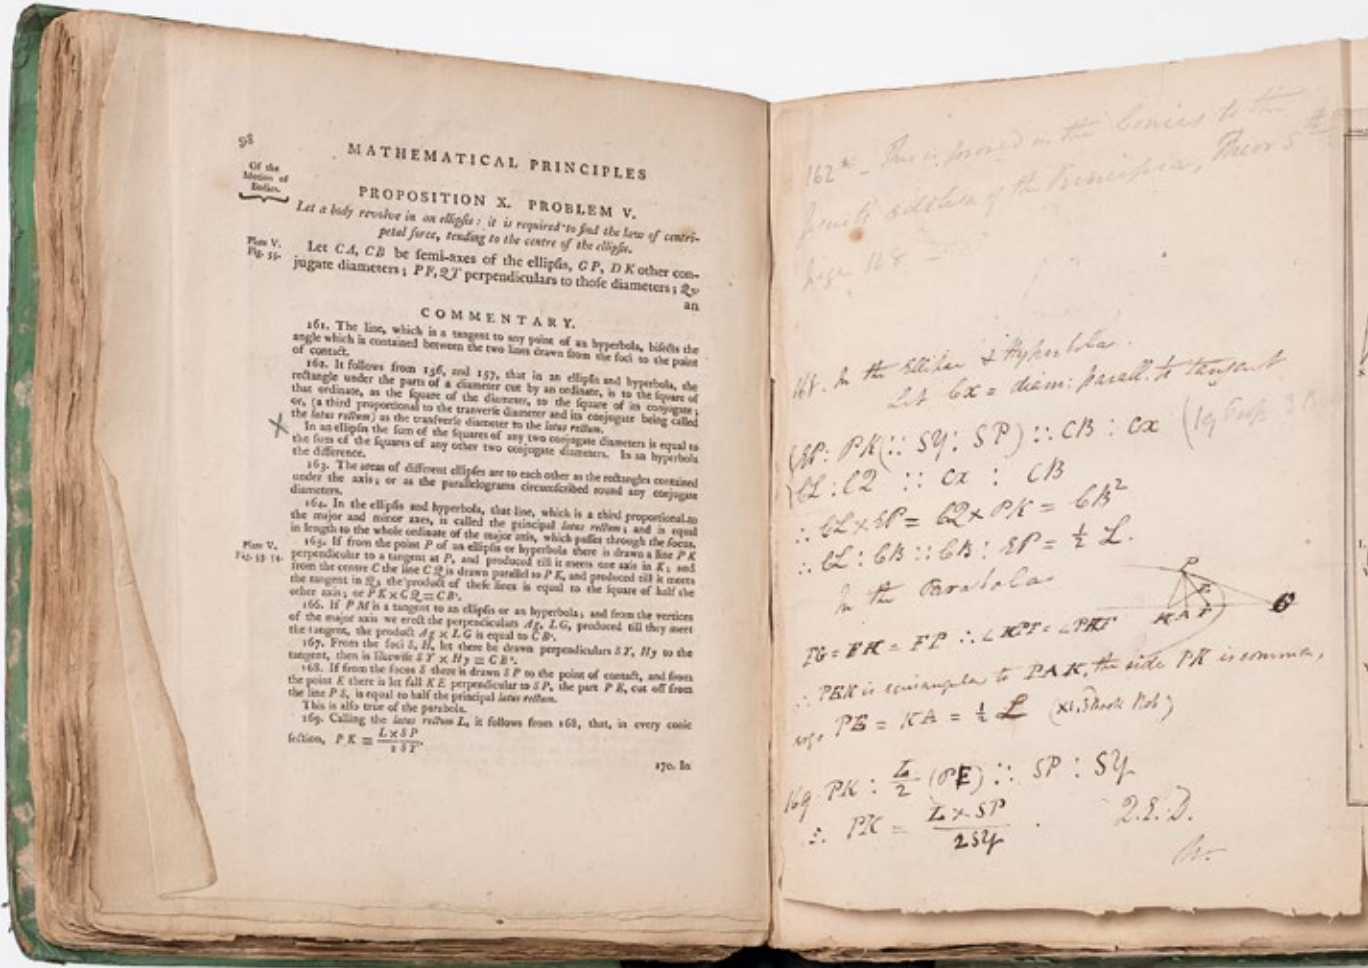 98
MATHEMATICAL PRINCIPLES
Of the
Motion of
Bodies.
PROPOSITION X. PROBLEM V.
Let a body revolve in an ellipſis: it is required to find the law of centri-
petal force, tending to the centre of the ellipſe.
Plate V.
Fig. 55.
Let CA, CB be ſemi-axes of the ellipſis, GP, DK other con-
jugate diameters; PF, QT perpendiculars to thoſe diameters; Qv
an
COMMENTARY.
161. The line, which is a tangent to any point of an hyperbola, biſects the
angle which is contained between the two lines drawn from the foci to the point
of contact.
162. It follows from 156, and 157, that in an ellipſis and hyperbola, the
rectangle under the parts of a diameter cut by an ordinate, is to the ſquare of
that ordinate, as the ſquare of the diameter, to the ſquare of its conjugate;
or, (a third proportional to the tranverſe diameter and its conjugate being called
the latus rectum) as the tranſverſe diameter to the latus rectum.
In an ellipſis the ſum of the ſquares of any two conjugate diameters is equal to
the ſum of the ſquares of any other two conjugate diameters. In an hyperbola
the difference.
163. The areas of different ellipſes are to each other as the rectangles contained
under the axis; or as the parallelograms circumſcribed round any conjugate
diameters.
164. In the ellipſis and hyperbola, that line, which is a third proportional to
the major and minor axes, is called the principal latus rectum; and is equal
in length to the whole ordinate of the major axis, which paſſes through the focus.
Plate V.
Fig. 53 54.
165. If from the point P of an ellipſis or hyperbola there is drawn a line PK
perpendicular to a tangent at P, and produced till it meets one axis in K; and
from the centre C the line CQ is drawn parallel to PK, and produced till it meets
the tangent in Q; the product of theſe lines is equal to the ſquare of half the
other axis; or PK × CQ = CB².
166. If PM is a tangent to an ellipſis or an hyperbola; and from the vertices
of the major axis we erect the perpendiculars Ag, LG, produced till they meet
the tangent, the product Ag × LG is equal to CB².
167. From the foci S, H, let there be drawn perpendiculars SY, Hy to the
tangent, then is likewiſe SY × Hy = CB².
168. If from the focus S there is drawn SP to the point of contact, and from
the point K there is let fall KE perpendicular to SP, the part PE, cut off from
the line PS, is equal to half the principal latus rectum.
This is alſo true of the parabola.
169. Calling the latus rectum L, it follows from 168, that, in every conic
ſection, PK = L × SP / 2 SY.
170. In
162 This is proved in the Conics to the
edition of the Principia, Theor 5th
page 128
168. In the Ellipse & Hyperbola.
Let Cx = diam: parall. to tangent
EP : PK (:: SY : SP) :: CB : Cx
CL : CQ :: Cx : CB
∴ CL × EP = CQ × PK = CB²
∴ CL : CB :: CB : EP = ½ L.
In the Parabola
∴ PEK is equiangular to PAK, the side PK is common,
ergo PE = KA = ½ L
169. PK : L/2 (PE) :: SP : SY
∴ PK = L × SP / 2SY . Q.E.D.